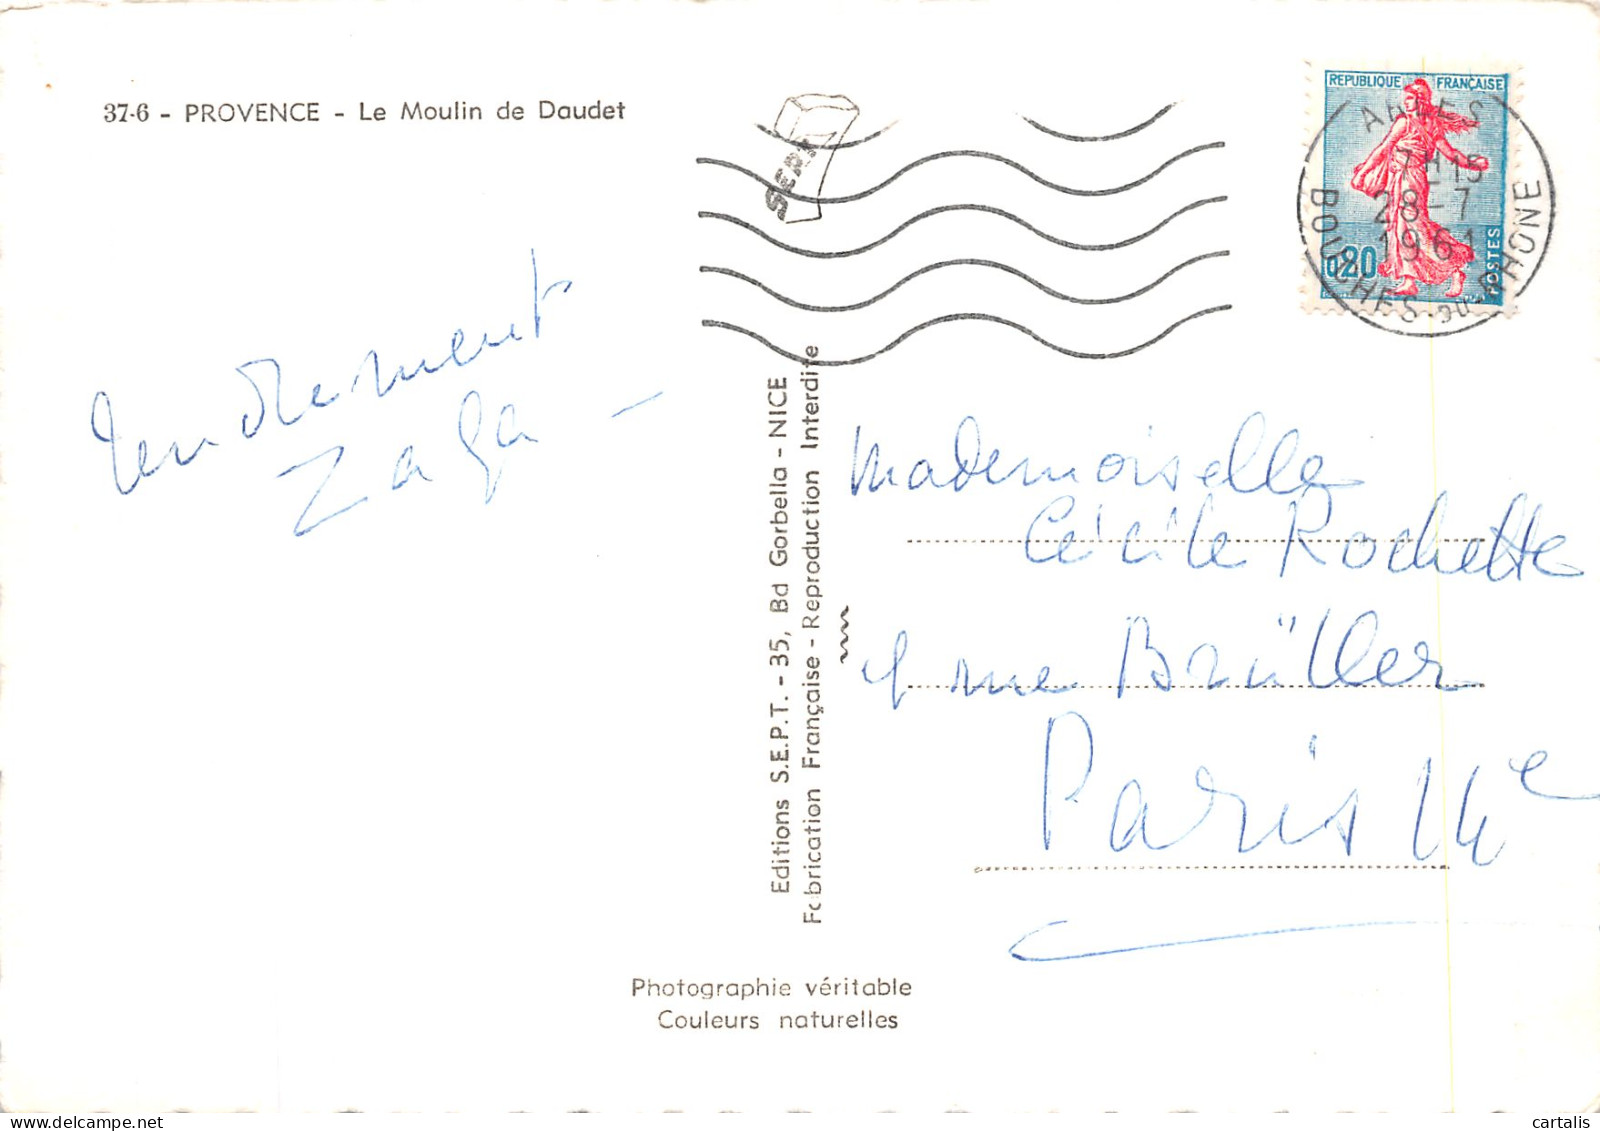 37-6 - PROVENCE - Le Moulin de Daudet
SEPT
REPUBLIQUE FRANÇAISE
0,20
POSTES
ARLES
7H15
28-7
1961
BOUCHES-DU-RHONE
Tendrement
Zaza -
Editions S.E.P.T. - 35, Bd Gorbella - NICE
Fabrication Française - Reproduction Interdite
Mademoiselle
Cécile Rochette
rue Brüller
Paris 14e
Photographie véritable
Couleurs naturelles
cartalis - delcampe.net